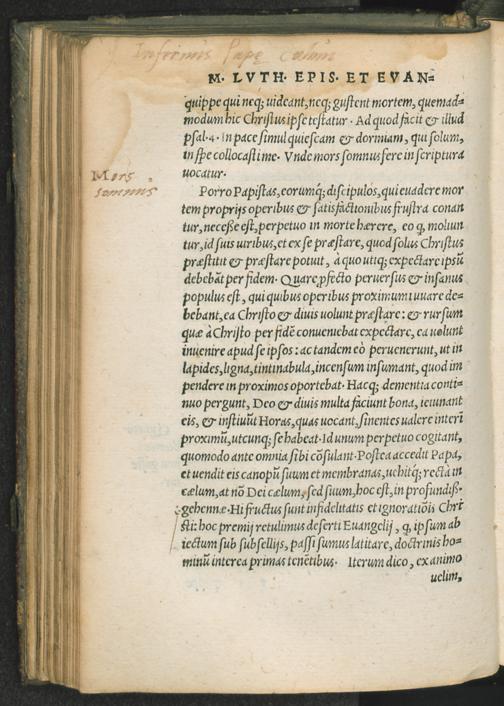 Infernus Papę cœlum
M. LVTH. EPIS. ET EVAN=
quippe qui neq; uideant, neq; gustent mortem, quemad=
modum hic Christus ipse testatur. Ad quod facit & illud
psal. 4. In pace simul quiescam & dormiam, qui solum,
in spe collocasti me. Vnde mors somnus fere in scriptura
uocatur.
Mors
somnus
Porro Papistas, eorumq; discipulos, qui euadere mor
tem proprijs operibus & satisfactionibus frustra conan
tur, necesse est, perpetuo in morte hærere, eo q, moliun
tur, id suis uiribus, et ex se præstare, quod solus Christus
præstitit & præstare potuit, à quo utiq; expectare ipsū
debebāt per fidem. Quare profecto peruersus & insanus
populus est, qui quibus operibus proximum iuuare de=
bebant, ea Christo & diuis uolunt præstare: & rursum
quæ à Christo per fidē conueniebat expectare, ea uolunt
inuenire apud se ipsos: ac tandem eò peruenerunt, ut in
lapides, ligna, tintinabula, incensum insumant, quod im
pendere in proximos oportebat. Hacq; dementia conti=
nuo pergunt, Deo & diuis multa faciunt bona, ieiunant
eis, & instituūt Horas, quas uocant, sinentes ualere interī
proximū, utcunq; se habeat. Id unum perpetuo cogitant,
quomodo ante omnia sibi cōsulant. Postea accedit Papa,
et uendit eis canopū suum et membranas, uehitq; rectà in
cælum, at nō Dei cælum, sed suum, hoc est, in profundiss.
gehennæ. Hi fructus sunt infidelitatis et ignoratiōis Chri
sti: hoc premij retulimus deserti Euangelij, q, ipsum ab
iectum sub subsellijs, passi sumus latitare, doctrinis ho=
minū interea primas tenētibus. Iterum dico, ex animo
uelim,